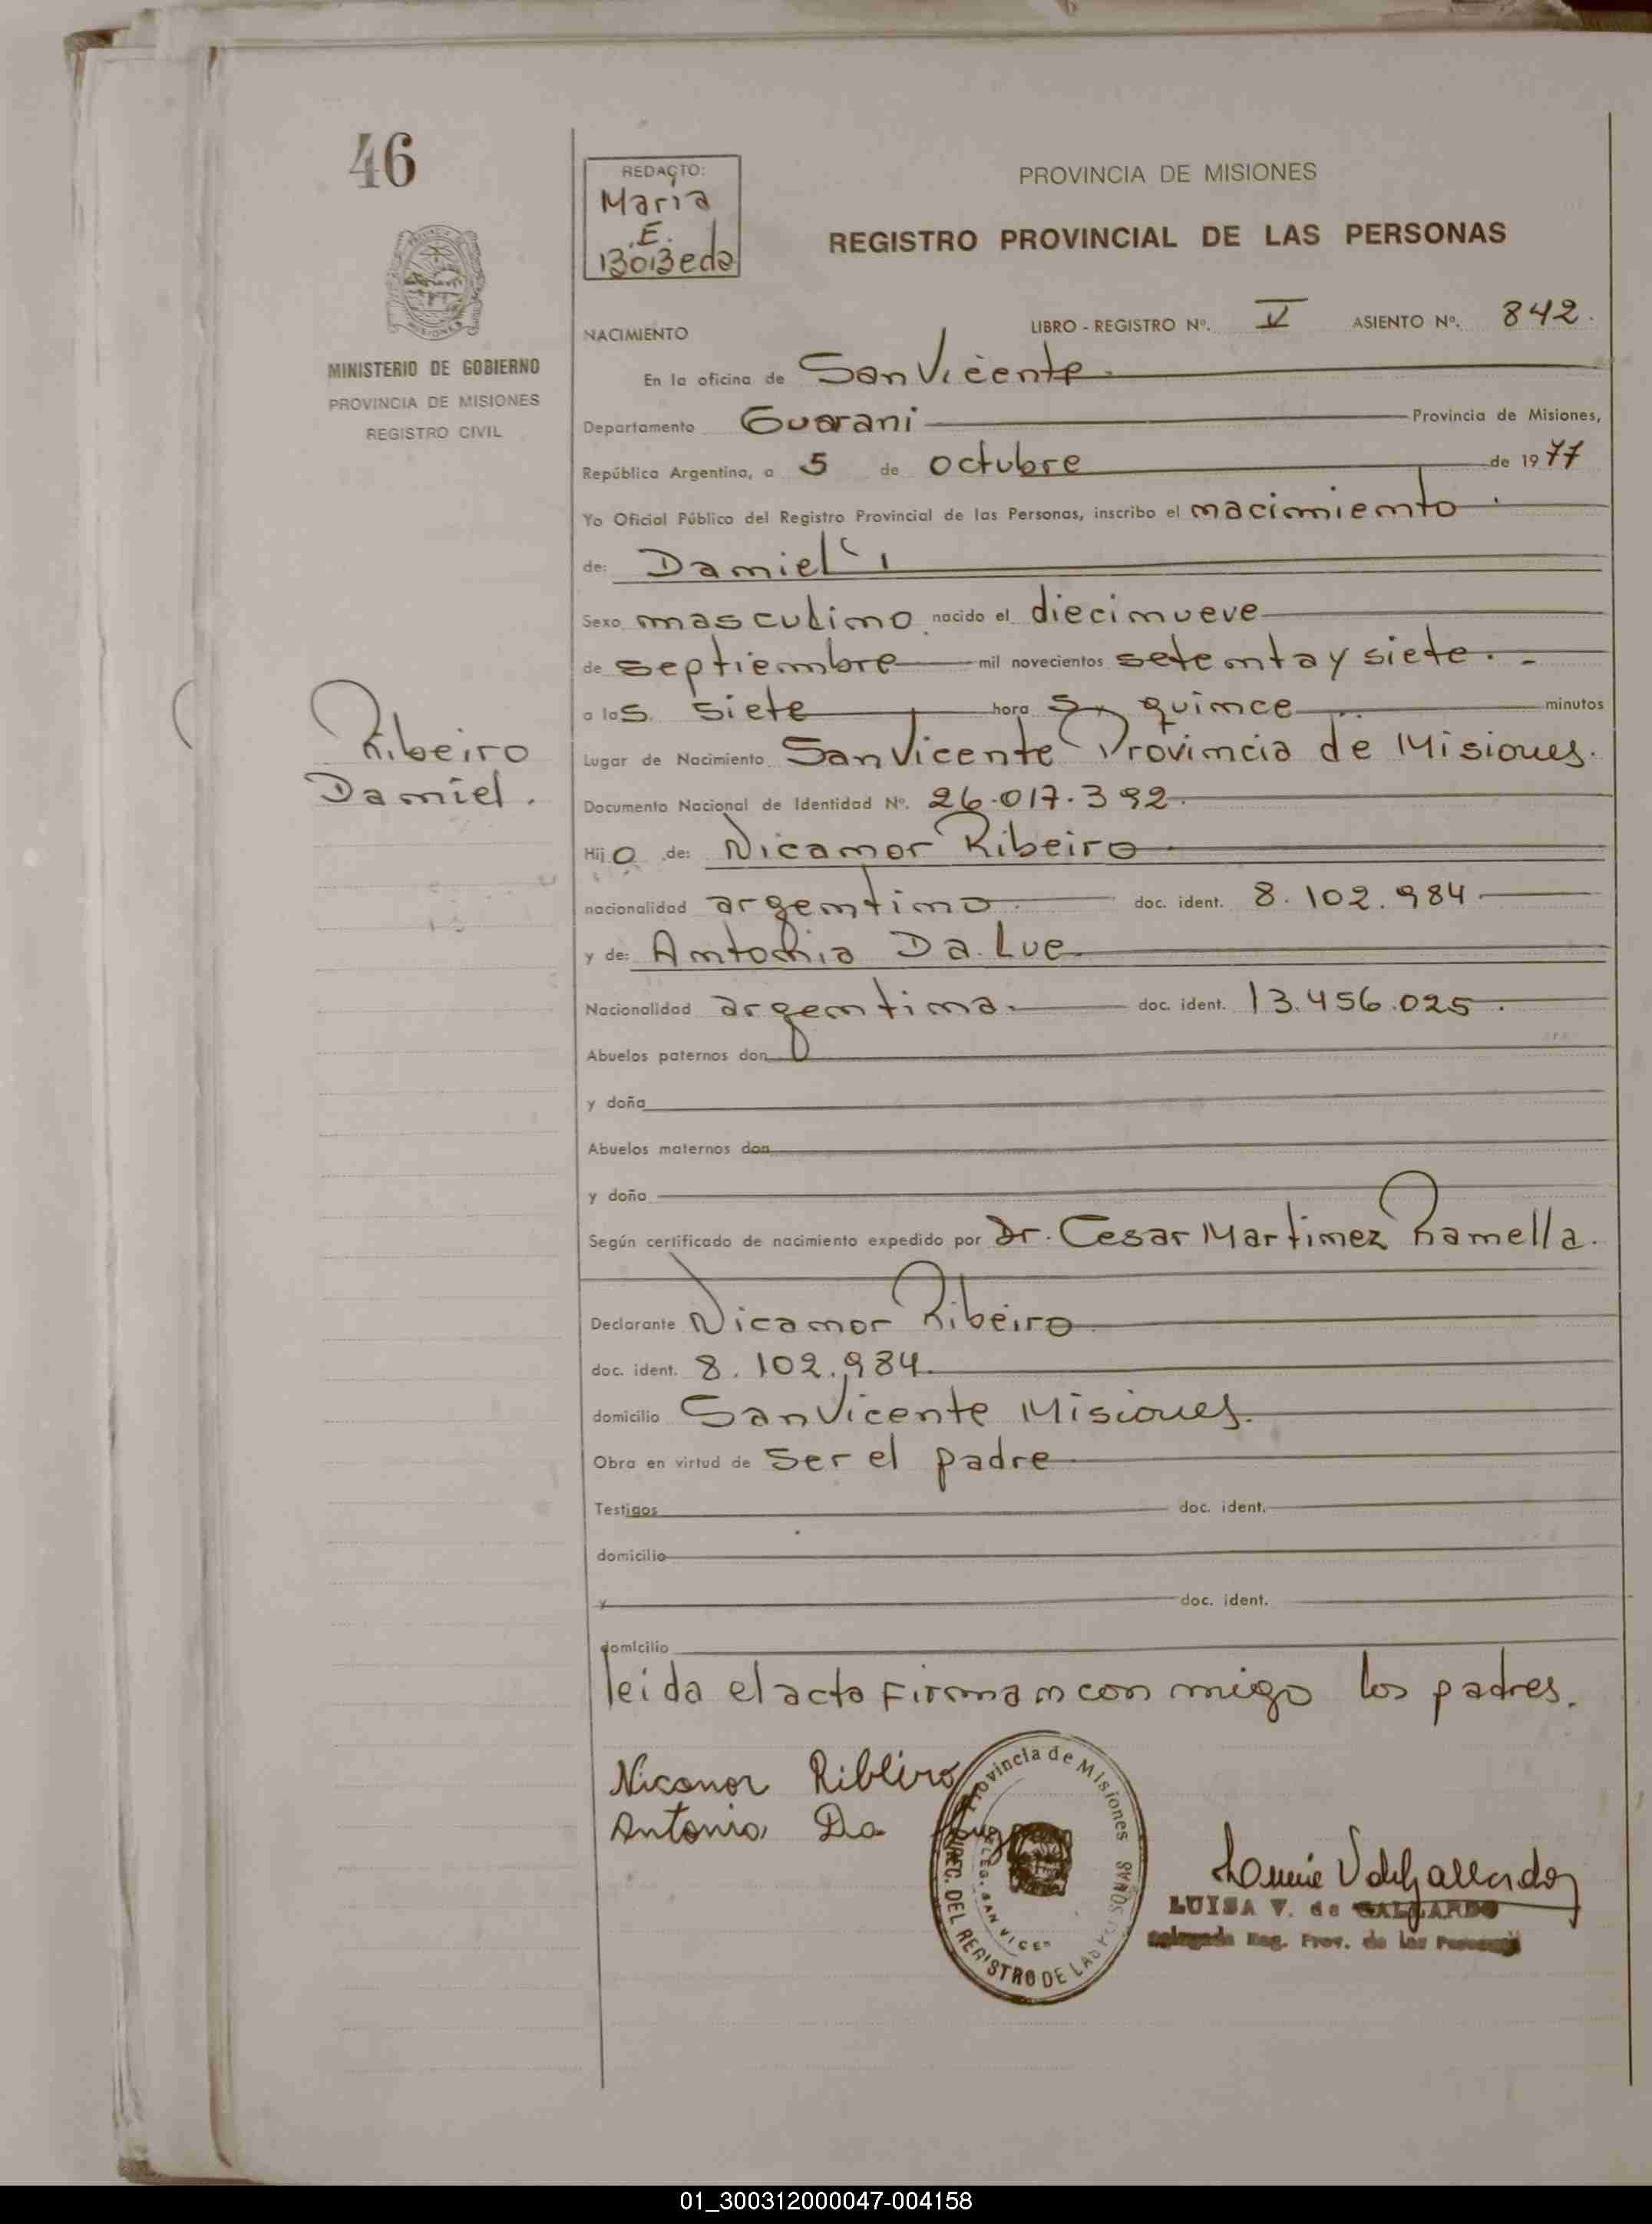 46
REDACTO:
Maria
E.
BoBeda
PROVINCIA DE MISIONES
REGISTRO PROVINCIAL DE LAS PERSONAS
MINISTERIO DE GOBIERNO
PROVINCIA DE MISIONES
REGISTRO CIVIL
NACIMIENTO LIBRO - REGISTRO Nº. V ASIENTO Nº. 842.
En la oficina de San Vicente
Departamento Guarani Provincia de Misiones,
República Argentina, a 5 de octubre de 1977
Yo Oficial Público del Registro Provincial de las Personas, inscribo el nacimiento
de: Daniel
Sexo masculino nacido el diecinueve
de septiembre mil novecientos setenta y siete.
a las siete horas, quince minutos
Ribeiro
Daniel.
Lugar de Nacimiento San Vicente Provincia de Misiones.
Documento Nacional de Identidad Nº. 26.017.392.
Hijo de: Nicanor Ribeiro
nacionalidad argentino doc. ident. 8.102.984
y de: Antonia Da Lue
Nacionalidad argentina doc. ident. 13.456.025
Abuelos paternos don
y doña
Abuelos maternos don
y doña
Según certificado de nacimiento expedido por Dr. Cesar Martinez Ramella.
Declarante Nicanor Ribeiro
doc. ident. 8.102.984.
domicilio San Vicente Misiones.
Obra en virtud de ser el padre
Testigos doc. ident.
domicilio
y doc. ident.
domicilio
leida el acta firman con migo los padres.
Nicanor Ribeiro
Antonia Da
Provincia de Misiones
DIREC. DEL REGISTRO DE LAS PERSONAS
DELEG. SAN VICEN
LUISA V. de GALLARDO
Delegada Reg. Prov. de las Personas
01_300312000047-004158